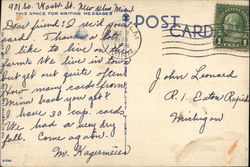 901 So. Wash. St. New Ulm Minn
THIS SPACE FOR WRITING MESSAGES
POST CARD
Dear friend: I recd your
card. Thanks a lot.
I like to live on the
farm. We live in town
but get out quite often.
How many cards from
Minn. have you got?
I have 30 cap. cards.
We had a very dry
fall. Come again.
M. Hagemeier
John Leonard
R. 1. Eaton Rapids
Michigan